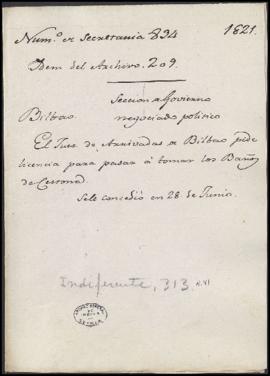 Num.º de Secretaria 834 1821.
Idem del Archivo. 209.
Seccion de Govierno
Bilbao. negociado politico
El Juez de Arrivadas de Bilbao pide
licencia para pasar á tomar los Baños
de Cestona.
Se le concedió en 28 de Junio.
Indiferente, 313 N.VI
SEVILLA